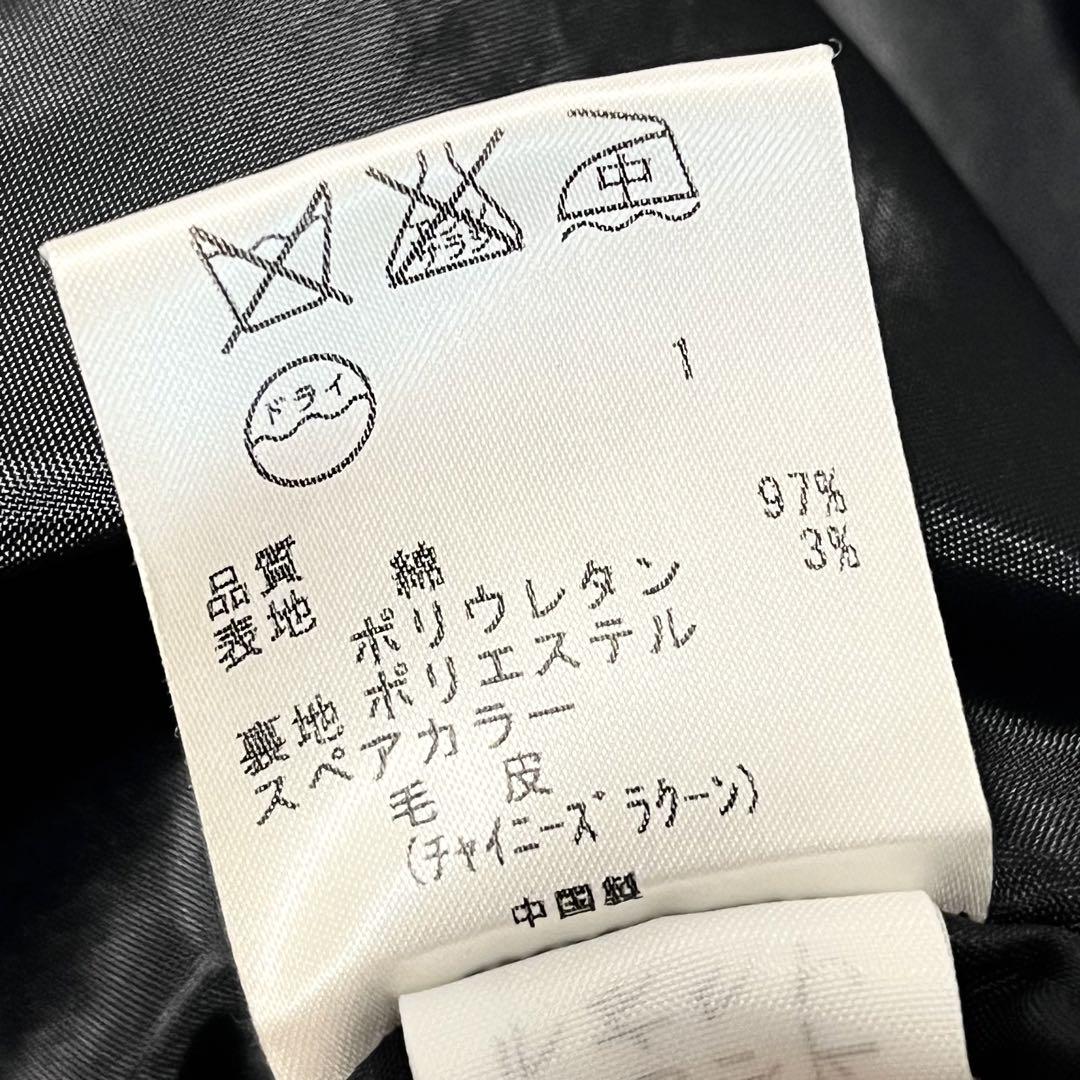 エンソ
中
ドライ
1
品質
表地 綿 97%
ポリウレタン 3%
裏地 ポリエステル
スペアカラー
毛皮
(チャイニーズラクーン)
中国製